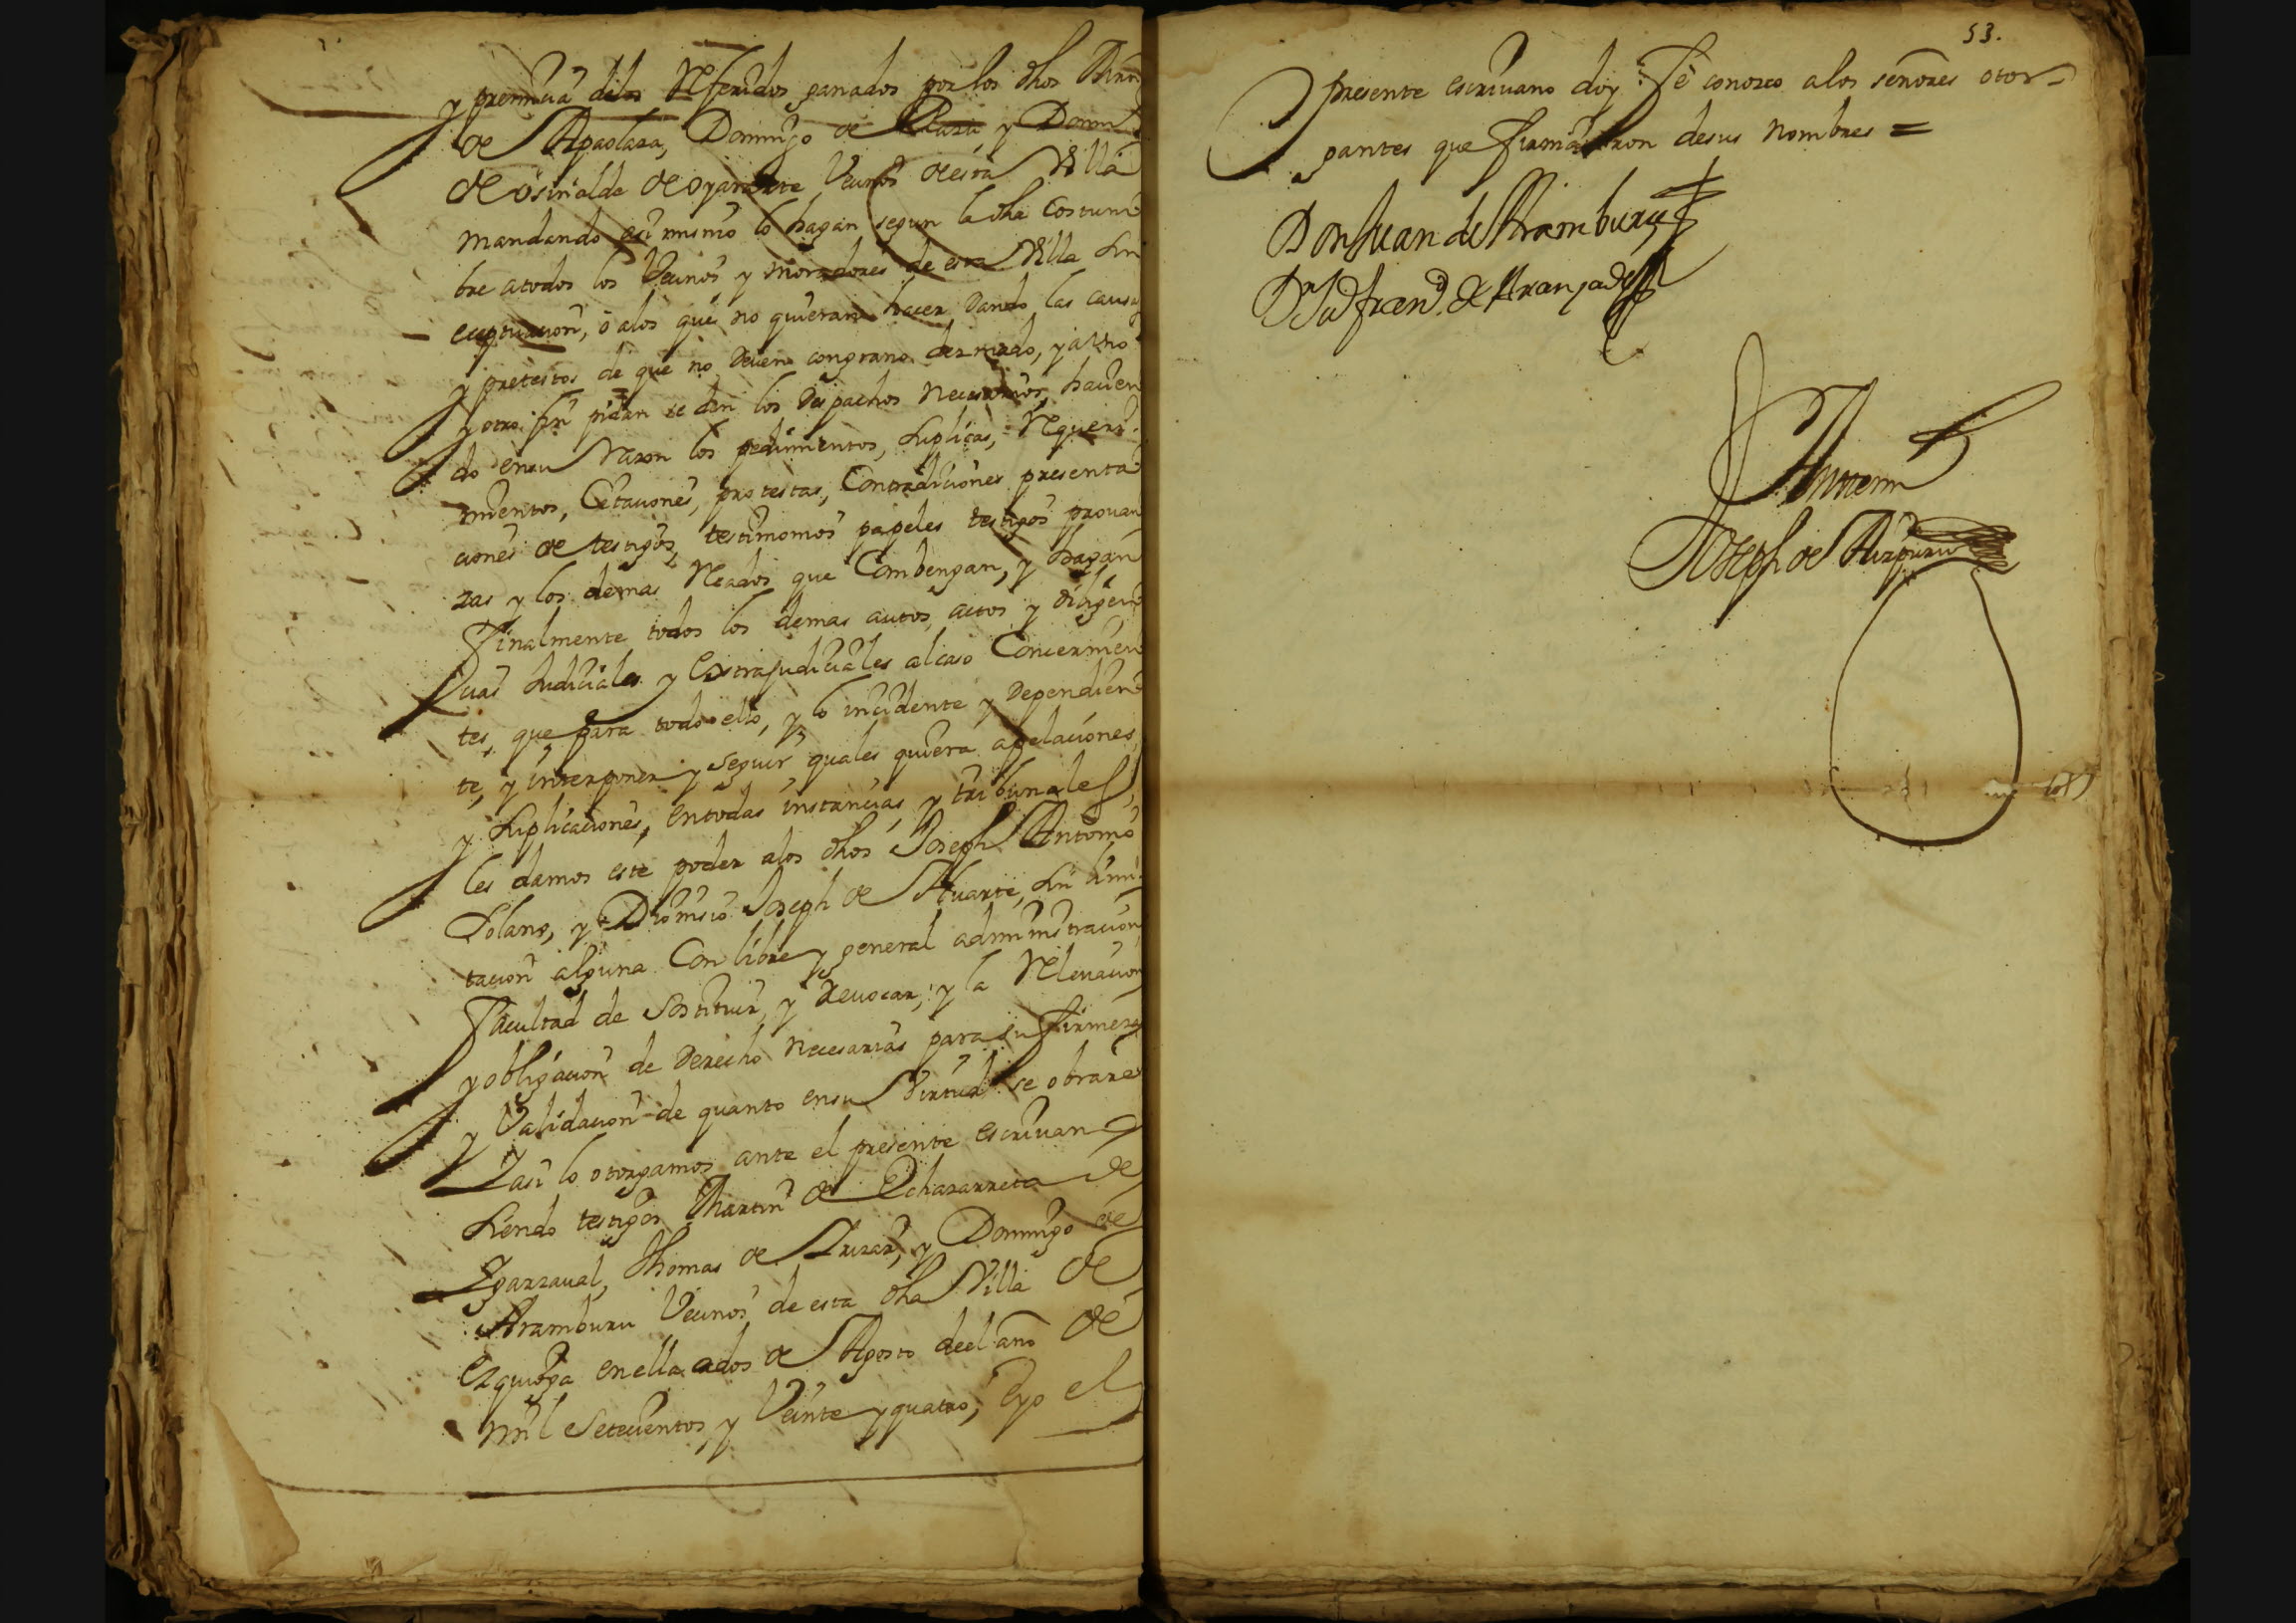 y premicia de los Referidos ganados por los dhos
de Apaolaza, Domingo de y Domin
de osinalde de oyarzarte Vecinos de esta Villa
mandando asi mismo lo hagan segun la dha Costum
bre atodos los Vecinos y moradores de esta Villa sin
exceptuacion, ò alos que no quieran hacer dando las causas
y pretestos de que no deven congrano dezmado, y a
y otro fin pidan se den los despachos necesarios, havien
do ensu razon los pedimentos, suplicas, Requeri
mientos, Citaciones, protestas, Contradiciones presenta
ciones de testigos, testimonios papeles testigos provan
zas y los demas Recados que Combengan, y hagan
finalmente todos los demas autos, actos y diligen
cias Judiciales y Extrajudiciales alcaso Concernien
tes, que para todo ello, y lo incidente y dependien
te, y interponer y seguir quales quiera apelaciones,
y suplicaciones, entodas instancias, y tribunales,
les damos este poder alos dhos Joseph Antonio
Solano, y Dionisio Joseph de Huarte, sin limi
tacion alguna Con libre y general administracion,
facultad de Sostituir, y Revocar, y la Relevacion
y obligacion de derecho necesarias para su firmeza
y Validacion de quanto ensu Virtud se obrare
Yasi lo otorgamos ante el presente escrivano
siendo testigos Martin de Echazarreta de
Ygarzaval, Thomas de Yrizar, y Domingo de
Aramburu Vecinos de esta dha Villa de
Ezquioga enella ados de Agosto deel año de
mil Setecientos y Veinte y quatro, Eyo el
53.
presente escrivano doy fe conozco alos señores otor
gantes que firmaron desus nombres =
Don Juan de Aramburu
Dn Ju fran.co de Aranzadi
Ante mi
Joseph de Aizpuru